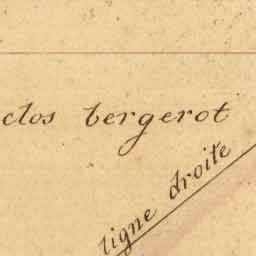 clos bergerot
ligne droite